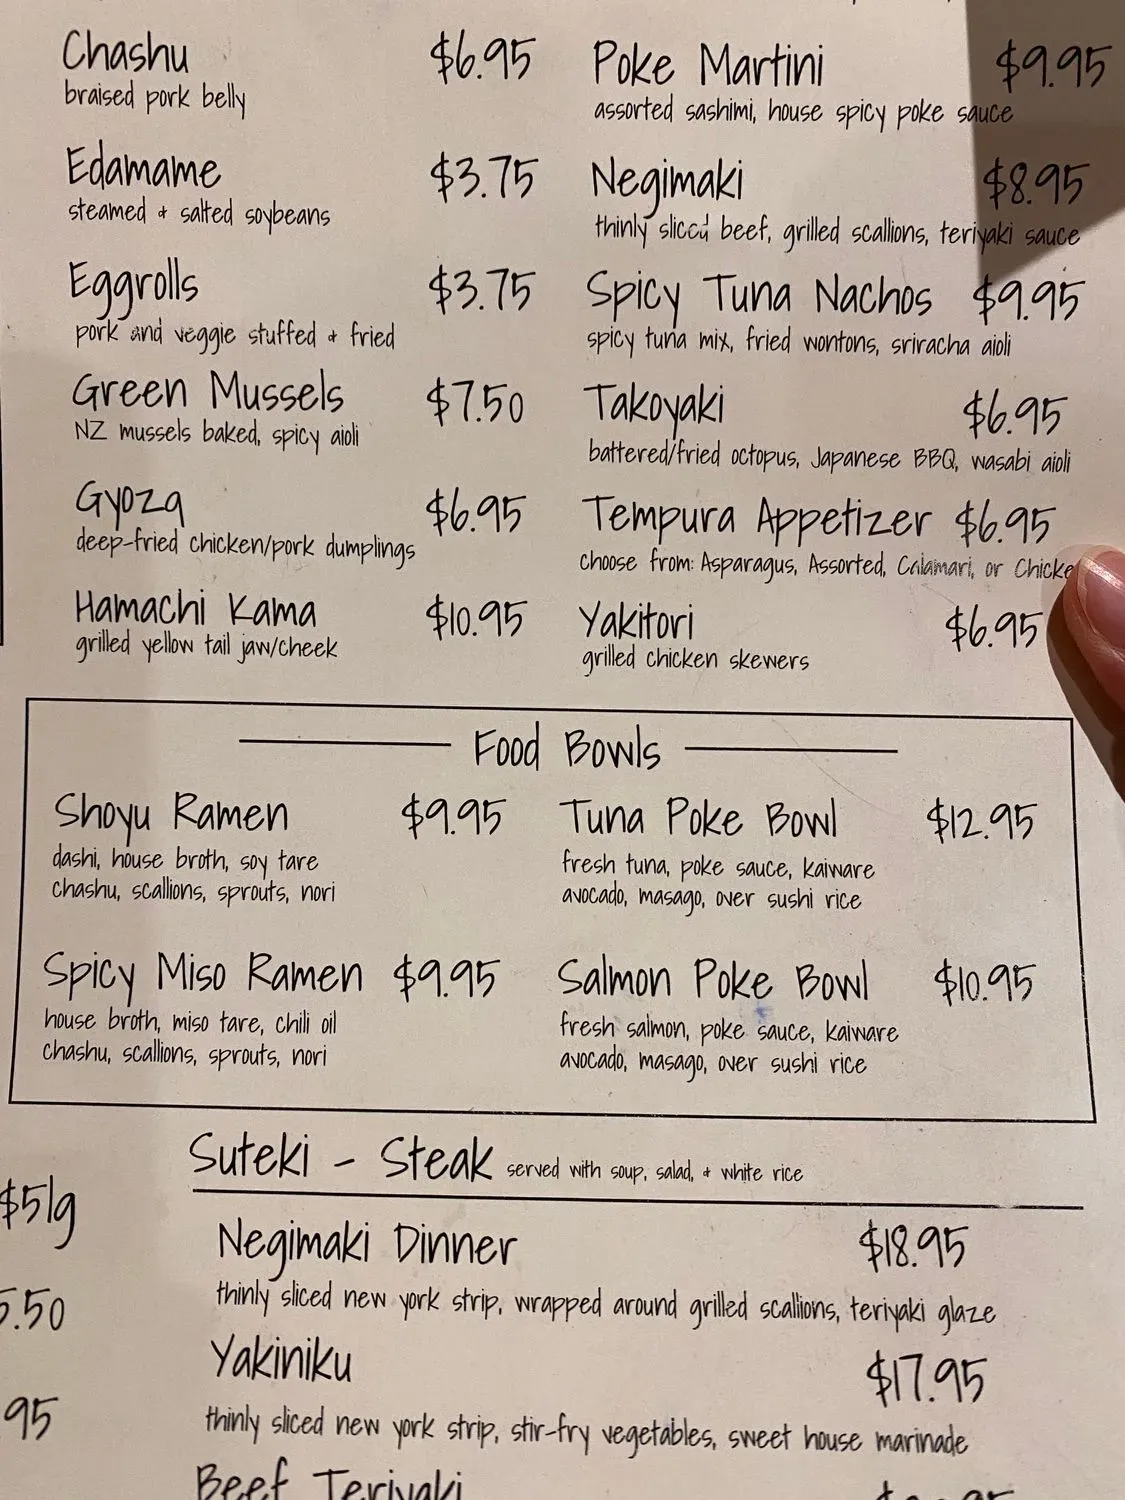 Chashu $6.95
braised pork belly
Edamame $3.75
steamed & salted soybeans
Eggrolls $3.75
pork and veggie stuffed & fried
Green Mussels $7.50
NZ mussels baked, spicy aioli
Gyoza $6.95
deep-fried chicken/pork dumplings
Hamachi Kama $10.95
grilled yellow tail jaw/cheek
Poke Martini $9.95
assorted sashimi, house spicy poke sauce
Negimaki $8.95
thinly sliced beef, grilled scallions, teriyaki sauce
Spicy Tuna Nachos $9.95
spicy tuna mix, fried wontons, sriracha aioli
Takoyaki $6.95
battered/fried octopus, Japanese BBQ, wasabi aioli
Tempura Appetizer $6.95
choose from: Asparagus, Assorted, Calamari, or Chicke
Yakitori $6.95
grilled chicken skewers
Food Bowls
Shoyu Ramen $9.95
dashi, house broth, soy tare
chashu, scallions, sprouts, nori
Spicy Miso Ramen $9.95
house broth, miso tare, chili oil
chashu, scallions, sprouts, nori
Tuna Poke Bowl $12.95
fresh tuna, poke sauce, kaiware
avocado, masago, over sushi rice
Salmon Poke Bowl $10.95
fresh salmon, poke sauce, kaiware
avocado, masago, over sushi rice
$5lg
5.50
95
Suteki - Steak served with soup, salad, & white rice
Negimaki Dinner $18.95
thinly sliced new york strip, wrapped around grilled scallions, teriyaki glaze
Yakiniku $17.95
thinly sliced new york strip, stir-fry vegetables, sweet house marinade
Beef Teriyaki